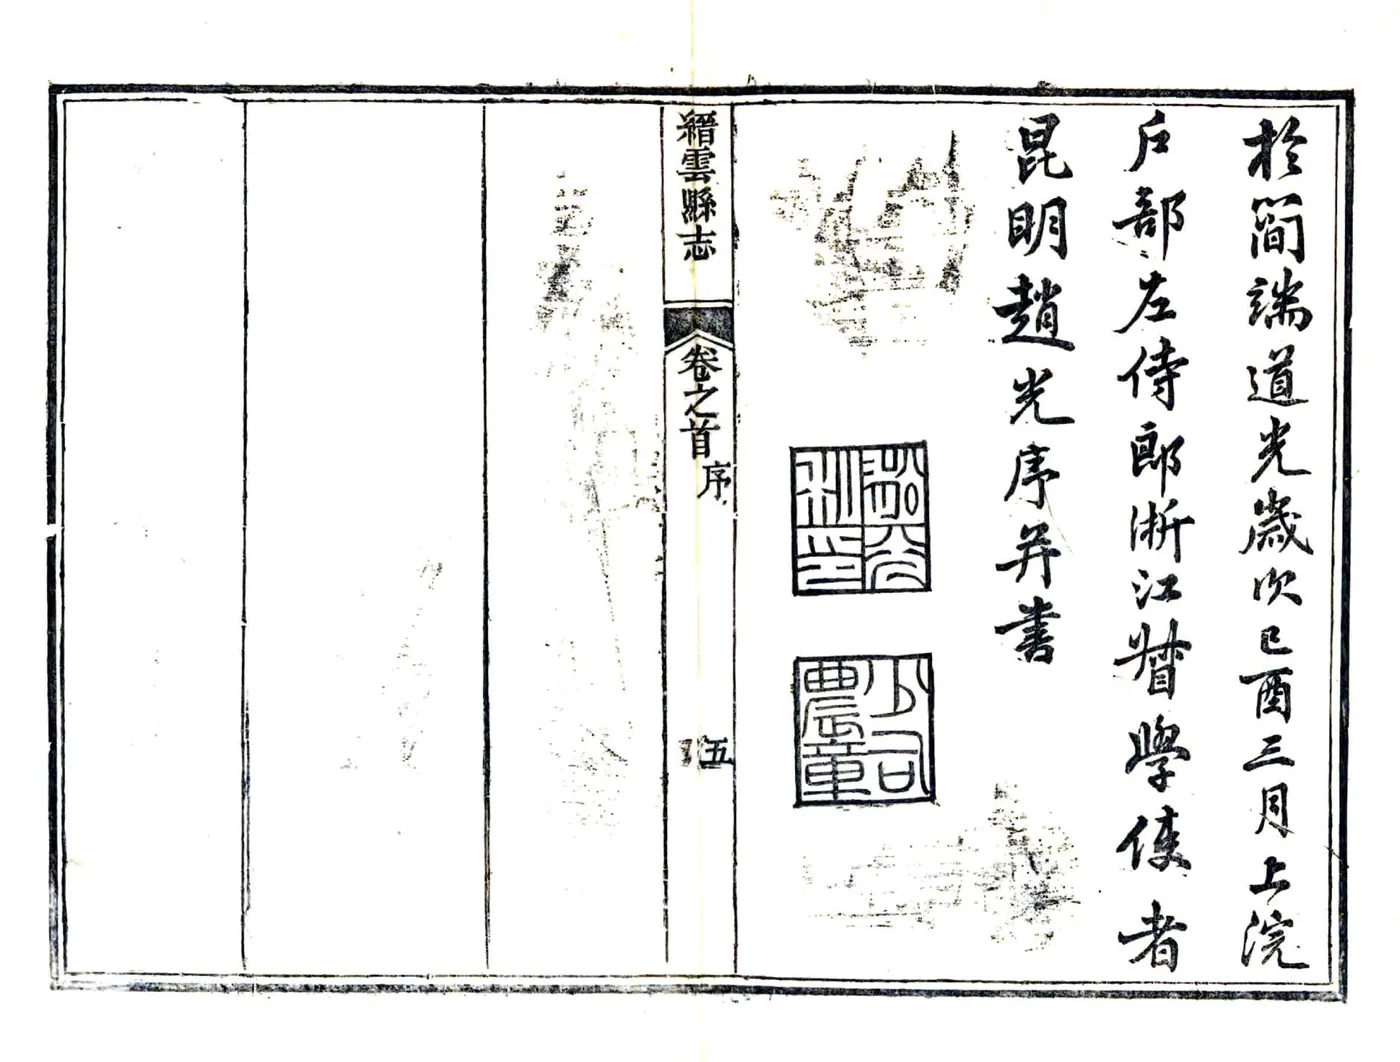 於簡端道光歲次己酉三月上浣
戶部左侍郎浙江督學使者
昆明趙光序并書
少司農章
縉雲縣志
卷之首
序
五